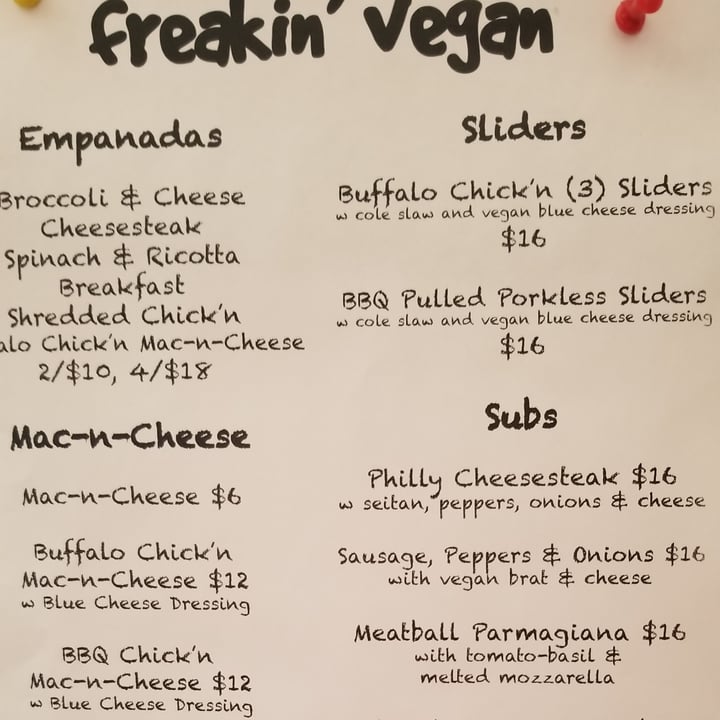 freakin' vegan
Empanadas
Broccoli & Cheese
Cheesesteak
Spinach & Ricotta
Breakfast
Shredded Chick'n
Chick'n Mac-n-Cheese
2/$10, 4/$18
Mac-n-Cheese
Mac-n-Cheese $6
Buffalo Chick'n
Mac-n-Cheese $12
w Blue Cheese Dressing
BBQ Chick'n
Mac-n-Cheese $12
w Blue Cheese Dressing
Sliders
Buffalo Chick'n (3) Sliders
w cole slaw and vegan blue cheese dressing
$16
BBQ Pulled Porkless Sliders
w cole slaw and vegan blue cheese dressing
$16
Subs
Philly Cheesesteak $16
w seitan, peppers, onions & cheese
Sausage, Peppers & Onions $16
with vegan brat & cheese
Meatball Parmagiana $16
with tomato-basil &
melted mozzarella